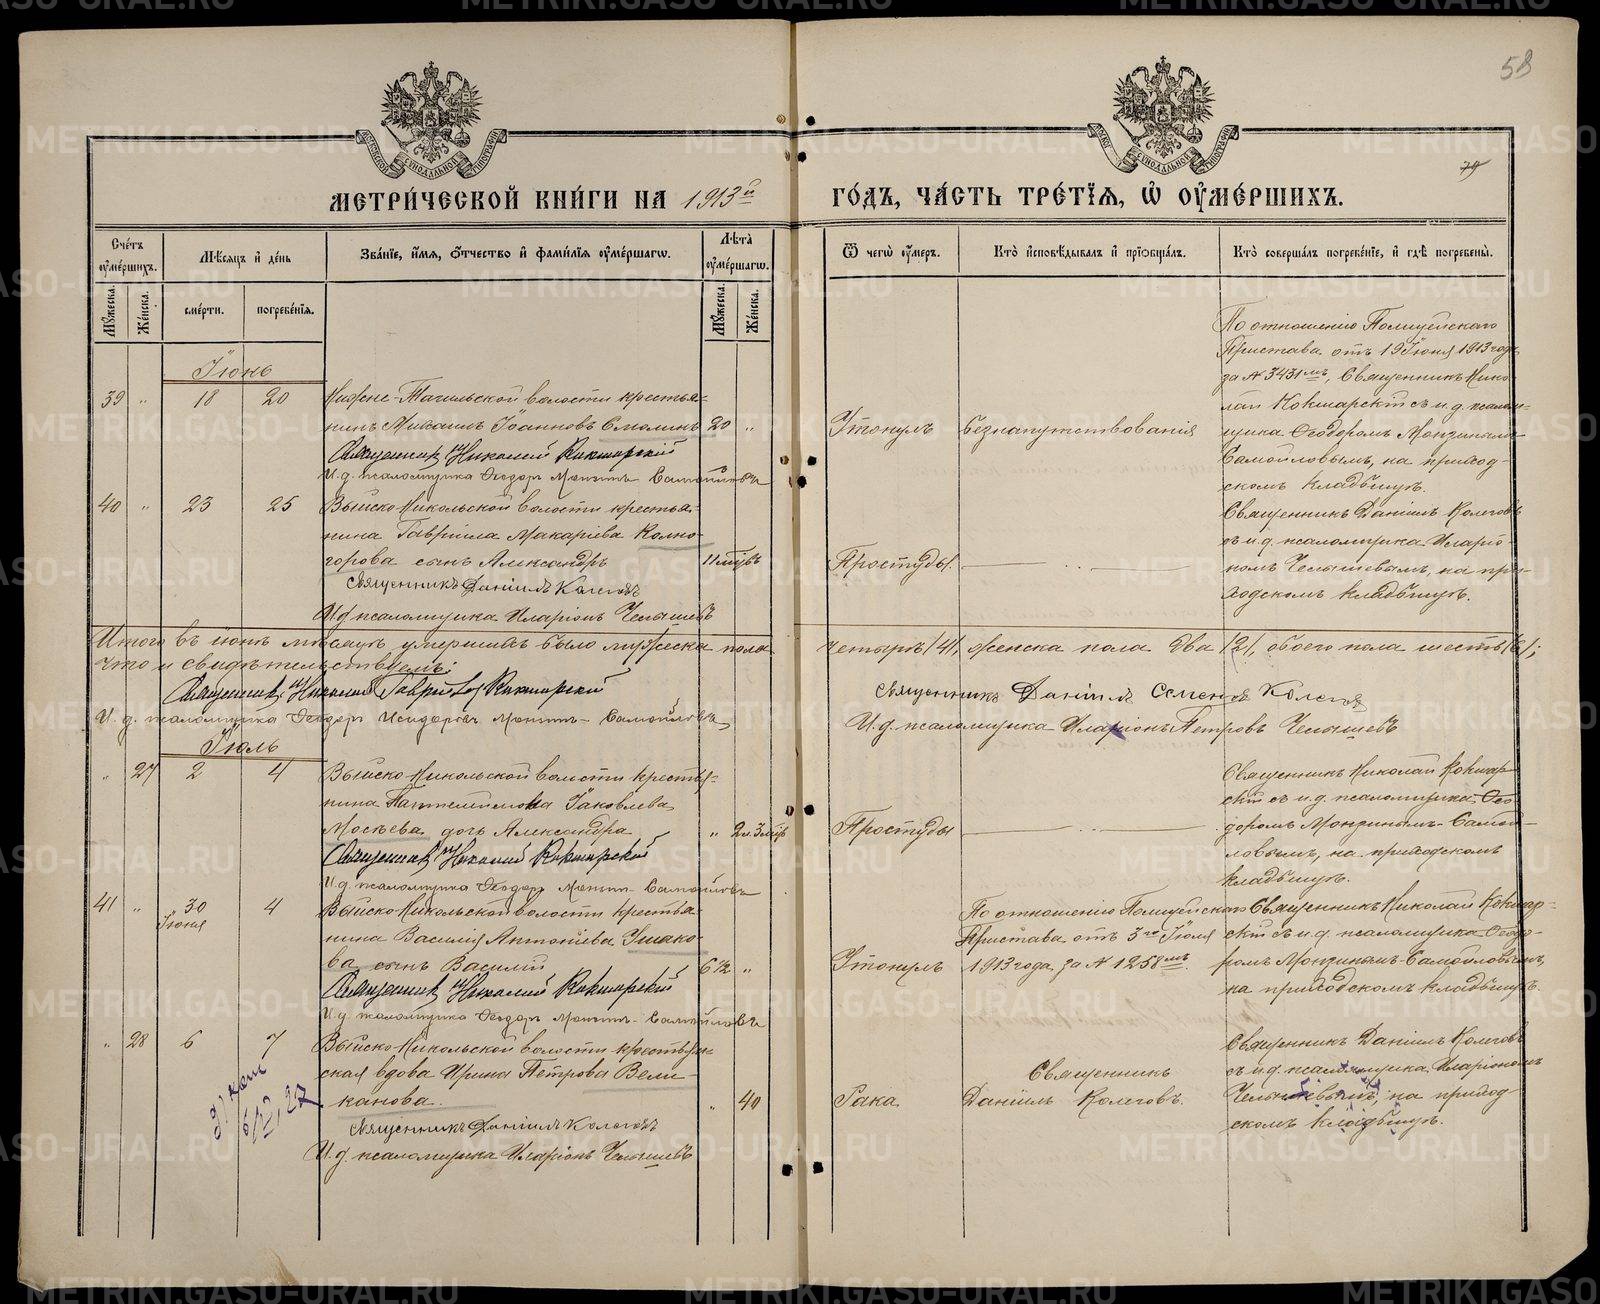 58
79
МОСКОВСКОЙ СѴНОДАЛЬНОЙ ТИПОГРАФІИ
МОСКОВ. СѴНОДАЛЬНОЙ ТИПОГРАФІИ
МЕТРИ́ЧЕСКОЙ КНИ́ГИ НА 1913й ГО́ДЪ, ЧА́СТЬ ТРЕ́ТІѦ, Ѡ ОУ҆МЕ́РШИХЪ.
Сче́тъ оу҆ме́ршихъ.
Мꙋ́жеска.
Же́нска.
Мѣ́сѧцъ и҆ де́нь
сме́рти.
погребе́нїѧ.
Зва́нїе, и҆́мѧ, ѻ҆́тчество и҆ фами́лїѧ оу҆ме́ршагѡ.
Лѣ́та оу҆ме́ршагѡ.
Мꙋ́жеска.
Же́нска.
Ѿ чегѡ̀ оу҆́меръ.
Кто̀ и҆сповѣ́дывалъ и҆ прїѡбща́лъ.
Кто̀ соверша́лъ погребе́нїе, и҆ гдѣ̀ погребены̀.
Іюнь
39 " 18 20
Нижне-Тагильской волости крестья-
нинъ Михаилъ Іоанновъ Смолинъ 20 "
Священникъ Николай Кокшарскій
И. д. псаломщика Ѳеодоръ Монзинъ Самойловъ
Утонулъ
безнапутствованія
По отношенію Полицейскаго
Пристава отъ 19 Іюня 1913 года
за № 3431мъ, Священникъ Нико-
лай Кокшарскій съ и. д. псалом-
щика Ѳеодоромъ Монзинымъ-
Самойловымъ, на приход-
скомъ кладбищѣ.
40 " 23 25
Выйско-Никольской волости крестья-
нина Гавріила Макаріева Колно-
горова сынъ Александръ 11 мцвъ
Священникъ Даніилъ Колеговъ
И. д. псаломщика Иларіонъ Челышевъ
Простуды
Священникъ Даніилъ Колеговъ
съ и. д. псаломщика Иларіо-
номъ Челышевымъ, на при-
ходскомъ кладбищѣ.
Итого въ іюнѣ мѣсяцѣ умершихъ было мужеска пола четыре /4/, женска пола два /2/, обоего пола шесть /6/;
что и свидѣтельствуемъ:
Священникъ Николай Гавриловъ Кокшарскій
И. д. псаломщика Ѳеодоръ Исидоровъ Монзинъ-Самойловъ
Священникъ Даніилъ Семеновъ Колеговъ
И. д. псаломщика Иларіонъ Петровъ Челышевъ
Іюль
" 27 2 4
Выйско-Никольской волости крестья-
нина Пантелеимона Іаковлева
Москвева дочь Александра " 2 л. 3 мцв
Священникъ Николай Кокшарскій
И. д. псаломщика Ѳеодоръ Монзинъ-Самойловъ
Простуды
Священникъ Николай Кокшар-
скій съ и. д. псаломщика Ѳео-
доромъ Монзинымъ-Самой-
ловымъ, на приходскомъ
кладбищѣ.
41 " 30 Іюня 4
Выйско-Никольской волости крестья-
нина Василія Антоніева Ушако-
ва сынъ Василій 6 1/2 "
Священникъ Николай Кокшарскій
И. д. псаломщика Ѳеодоръ Монзинъ-Самойловъ
Утонулъ
По отношенію Полицейскаго
Пристава отъ 3го Іюля
1913 года за № 1258мъ.
Священникъ Николай Кокшар-
скій съ и. д. псаломщика Ѳеодо-
ромъ Монзинымъ-Самойловымъ,
на приходскомъ кладбищѣ.
" 28 6 7
Выйско-Никольской волости крестьян-
ская вдова Ирина Петрова Вели-
канова. " 40
Священникъ Даніилъ Колеговъ
И. д. псаломщика Иларіонъ Челышевъ
Рака
Священникъ
Даніилъ Колеговъ.
Священникъ Даніилъ Колеговъ
съ и. д. псаломщика Иларіономъ
Челышевымъ, на приход-
скомъ кладбищѣ.
METRIKI.GASO-URAL.RU